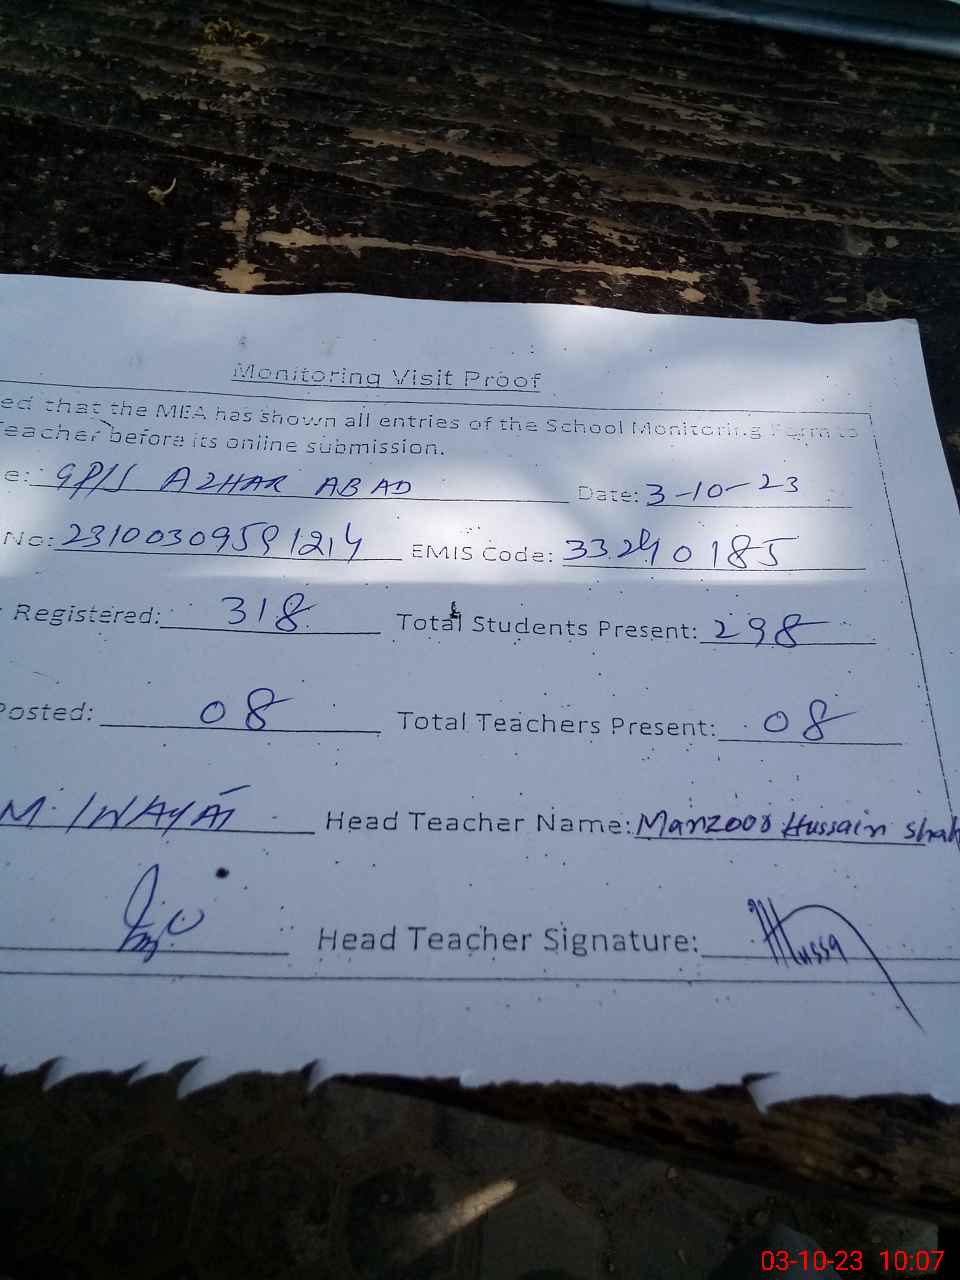 Monitoring Visit Proof
ed that the MEA has shown all entries of the School Monitoring Form to
Teacher before its online submission.
e: GP/S AZHAR ABAD Date: 3-10-23
No: EMIS Code: 33240185
Registered: 318 Total Students Present: 298
Posted: 08 Total Teachers Present: 08
M. Head Teacher Name: Manzoor Hussain Shah
Head Teacher Signature: Hussa
03-10-23 10:07